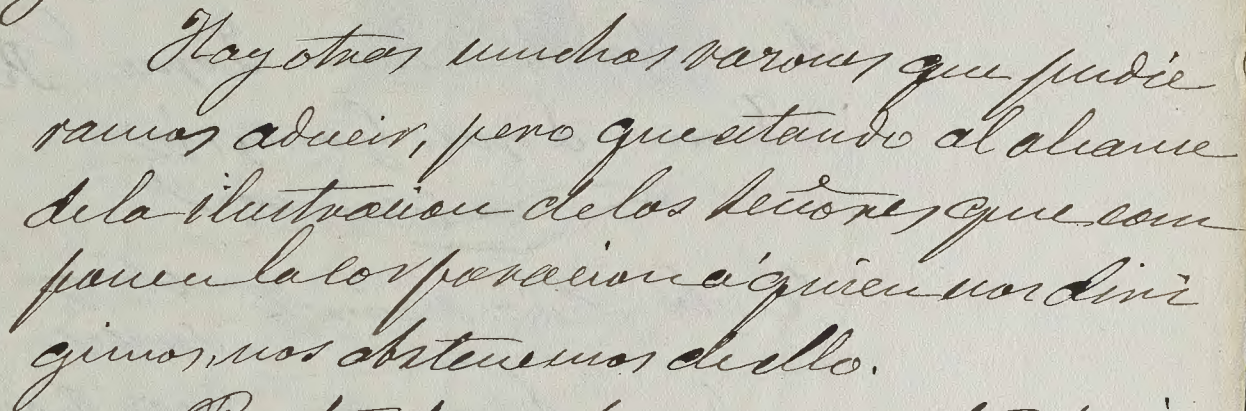 Hay otras muchas razones que pudie
ramos aducir, pero que estando al alcance
de la ilustracion de los Señores que com
ponen la corporacion á quien nos diri
gimos, nos abstenemos de ello.